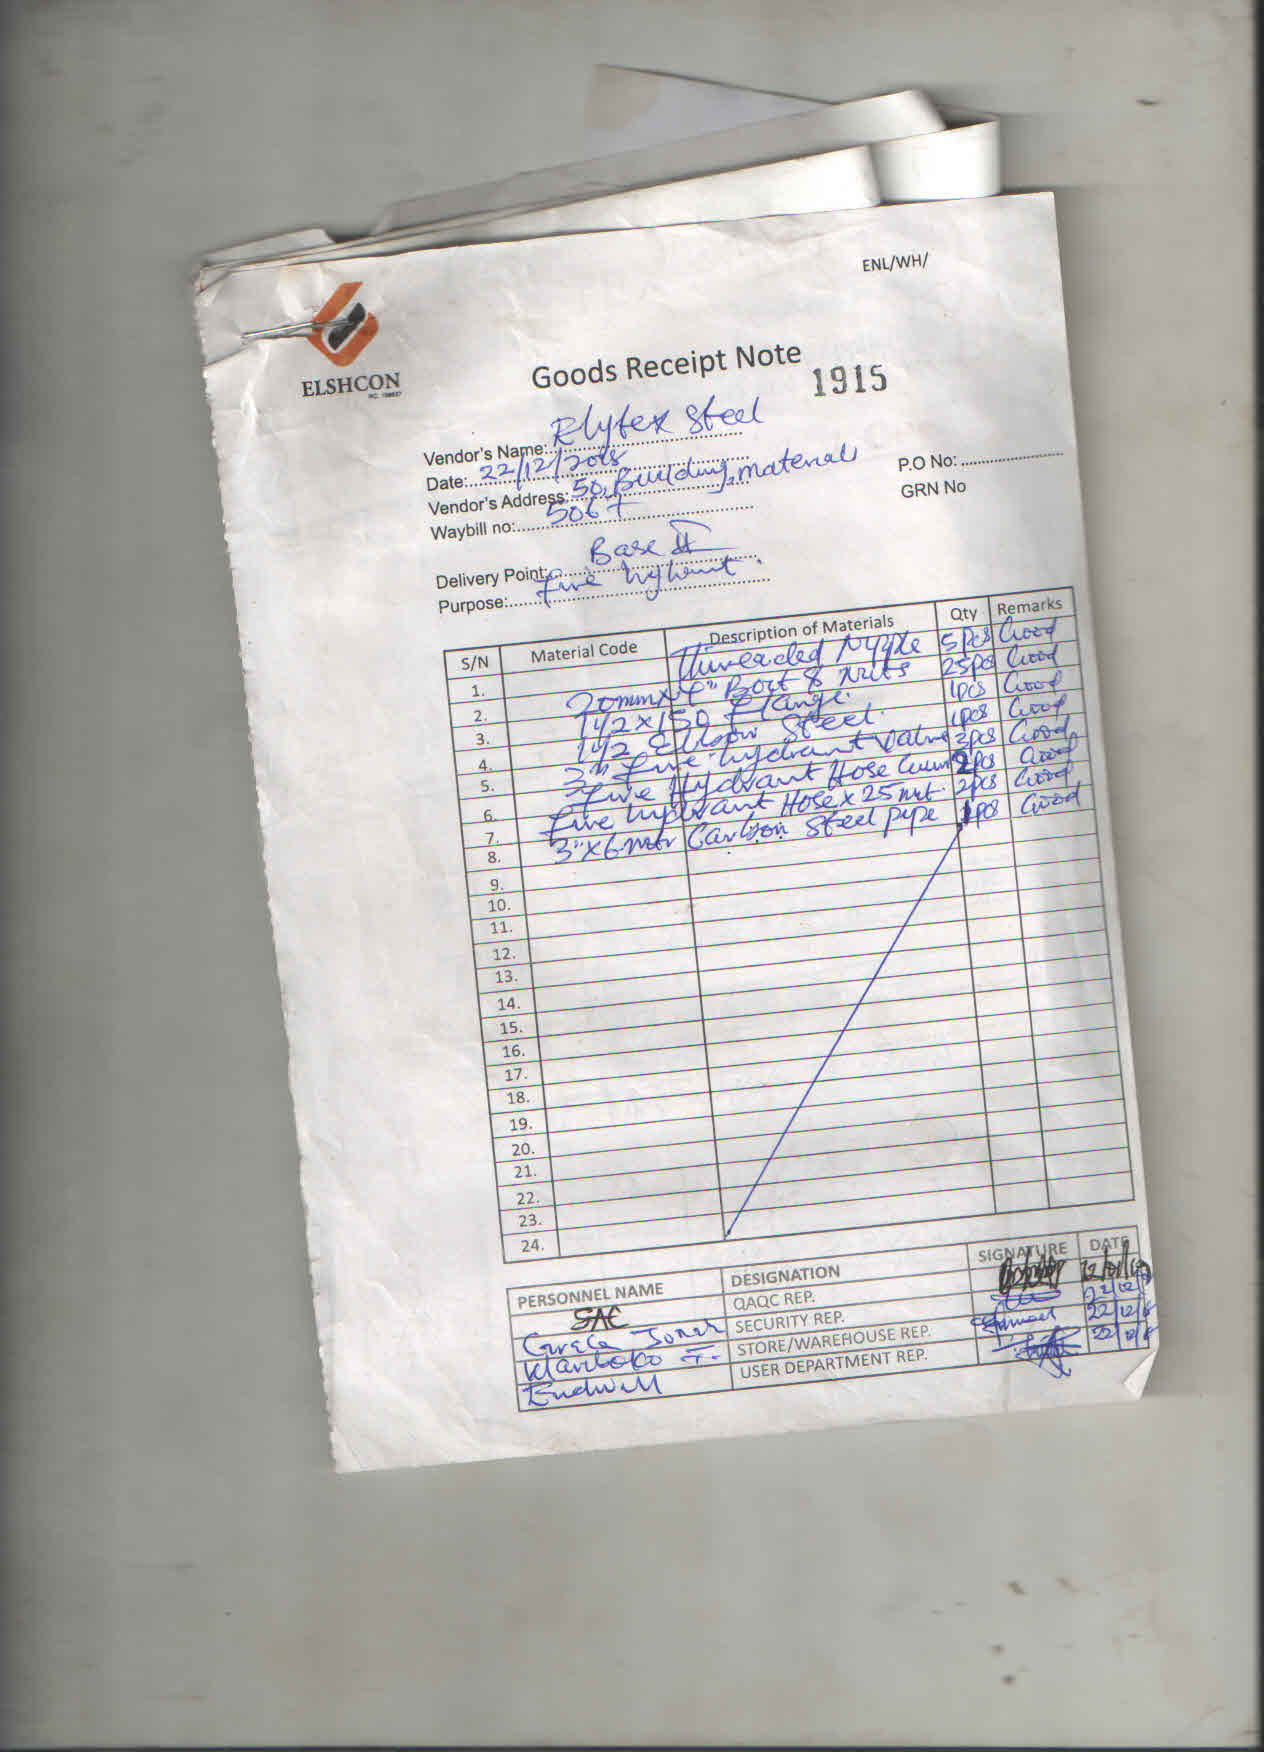 ENL/WH/
ELSHCON
Goods Receipt Note
1915
Vendor's Name: Rlytex Steel
Date: 22/12/2018
Vendor's Address: 50, Building, material
P.O No:
Waybill no: 5067
GRN No
Delivery Point: Base II
Purpose: Fire hydrant.
S/N Material Code Description of Materials Qty Remarks
1. Threaded Nipple 5pcs Good
2. 20mm x 4" Bolt & Nuts 25pcs Good
3. 1 1/2 x 150 Flange. 1pcs Good
4. 1 1/2 Elbow Steel. 1pcs Good
5. 3" Fire hydrant valve 2pcs Good
6. Fire Hydrant Hose 2pcs Good
7. Fire hydrant Hose x 25mt. 2pcs Good
8. 3" x 6mtr Carbon Steel pipe 1pcs Good
9.
10.
11.
12.
13.
14.
15.
16.
17.
18.
19.
20.
21.
22.
23.
24.
PERSONNEL NAME DESIGNATION SIGNATURE DATE
QAQC REP.
SECURITY REP.
STORE/WAREHOUSE REP.
USER DEPARTMENT REP.